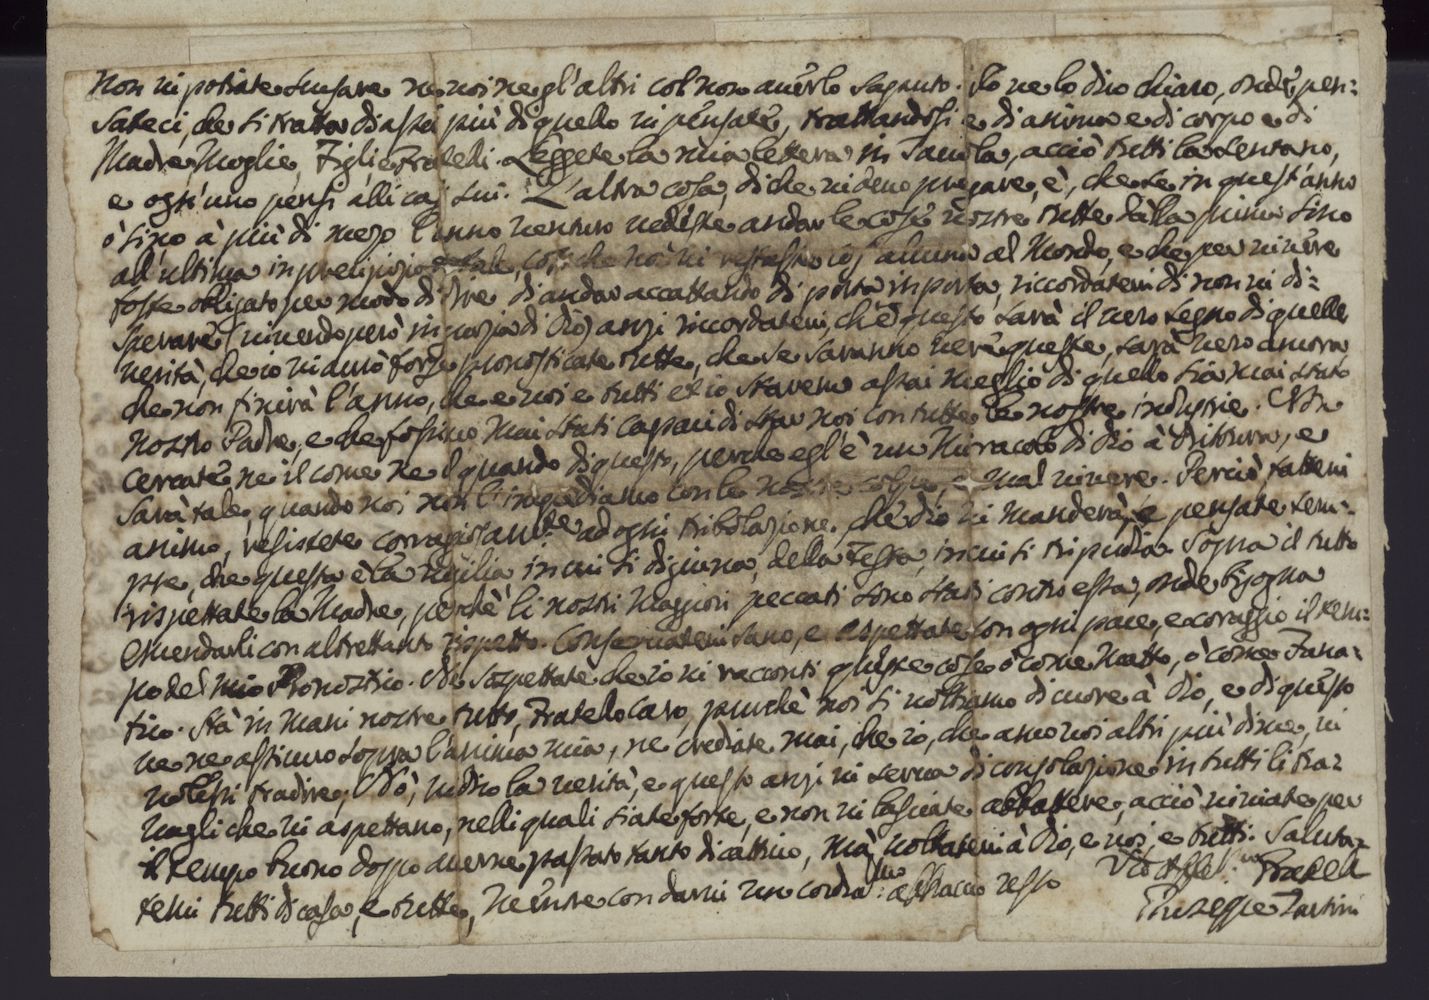 Non vi potiate scusare nè voi nè gl'altri col non averlo saputo. Io ve lo dico chiaro, onde pen:
sateci, che si tratta di assai più di quello vi pensate, trattandosi e di anima e di corpo e di
Madre Moglie, Figli e Fratelli. Leggete la mia lettera in Tavola, acciò tutti la sentano,
e ogn'uno pensi alli casi sui. L'altra cosa, di che vi devo pregare, è, che se in quest'anno
ò sino à più di mezo l'anno venturo vedeste andar le cose vostre tutte dalla prima sino
all'ultima in precipizio tale, così che nõ vi restasse cosa alcuna al Mondo, e che per vivere
foste obligato per modo di dire di andar accattando di porta in porta, riccordatevi di non vi di:
sperare (vivendo però in grazia di Dio) anzi riccordatevi, che questo sarà il vero segno di quelle
verità, che io vi avrò forse pronosticate tutte, che se saranno vere queste, sarà vero ancora
che non finirà l'anno, che e voi e tutti et io staremo assai meglio di quello sia mai stato
nostro Padre, e che fossimo mai stati capaci di star noi con tutte le nostre industrie. Nõ
cercate ne il come ne il quando di questo, perche egl'è un Miracolo di Dio à dirittura, e
sarà tale, quando noi non l'impediamo con le nostre colpe, e mal vivere. Perciò fattevi
animo, resistete corragiosam:te ad ogni tribolazione, che Dio vi manderà, e pensate sem:
pre, che questa è la vigilia in cui si digiuna, della Festa, in cui si tripudia. Sopra il tutto
rispettate la Madre, perchè li nostri maggiori peccati sono stati contro essa, onde bisogna
emendarli con altrettanto rispetto. Conservatevi sano, e aspettate con ogni pace, e coraggio il tem:
po del mio Pronostico. Nè sospettate che io vi racconti queste cose ò come Matto, ò come Fana:
tico. Stà in mani nostre tutto, Fratelo Caro, purchè noi si voltiamo di cuore à Dio, e di questo
ve ne assicuro sopra l'anima mia, ne crediate mai, che io, che amo voi altri più di me, vi
volessi tradire; Nò, vi dico la verità, e questo anzi vi serva di consolazione in tutti li tra:
vagli che vi aspettano, nelli quali siate forte, e non vi lasciate abbattere, acciò viviate per
il tempo buono doppo averne passato tanto di cattivo, mà voltatevi à Dio, e voi, e tutti. Saluta:
temi tutti di casa, e tutte, mentre con darvi un cordial:mo abbraccio resto
Vro Aff:mo Fratello
Giuseppe Tartini